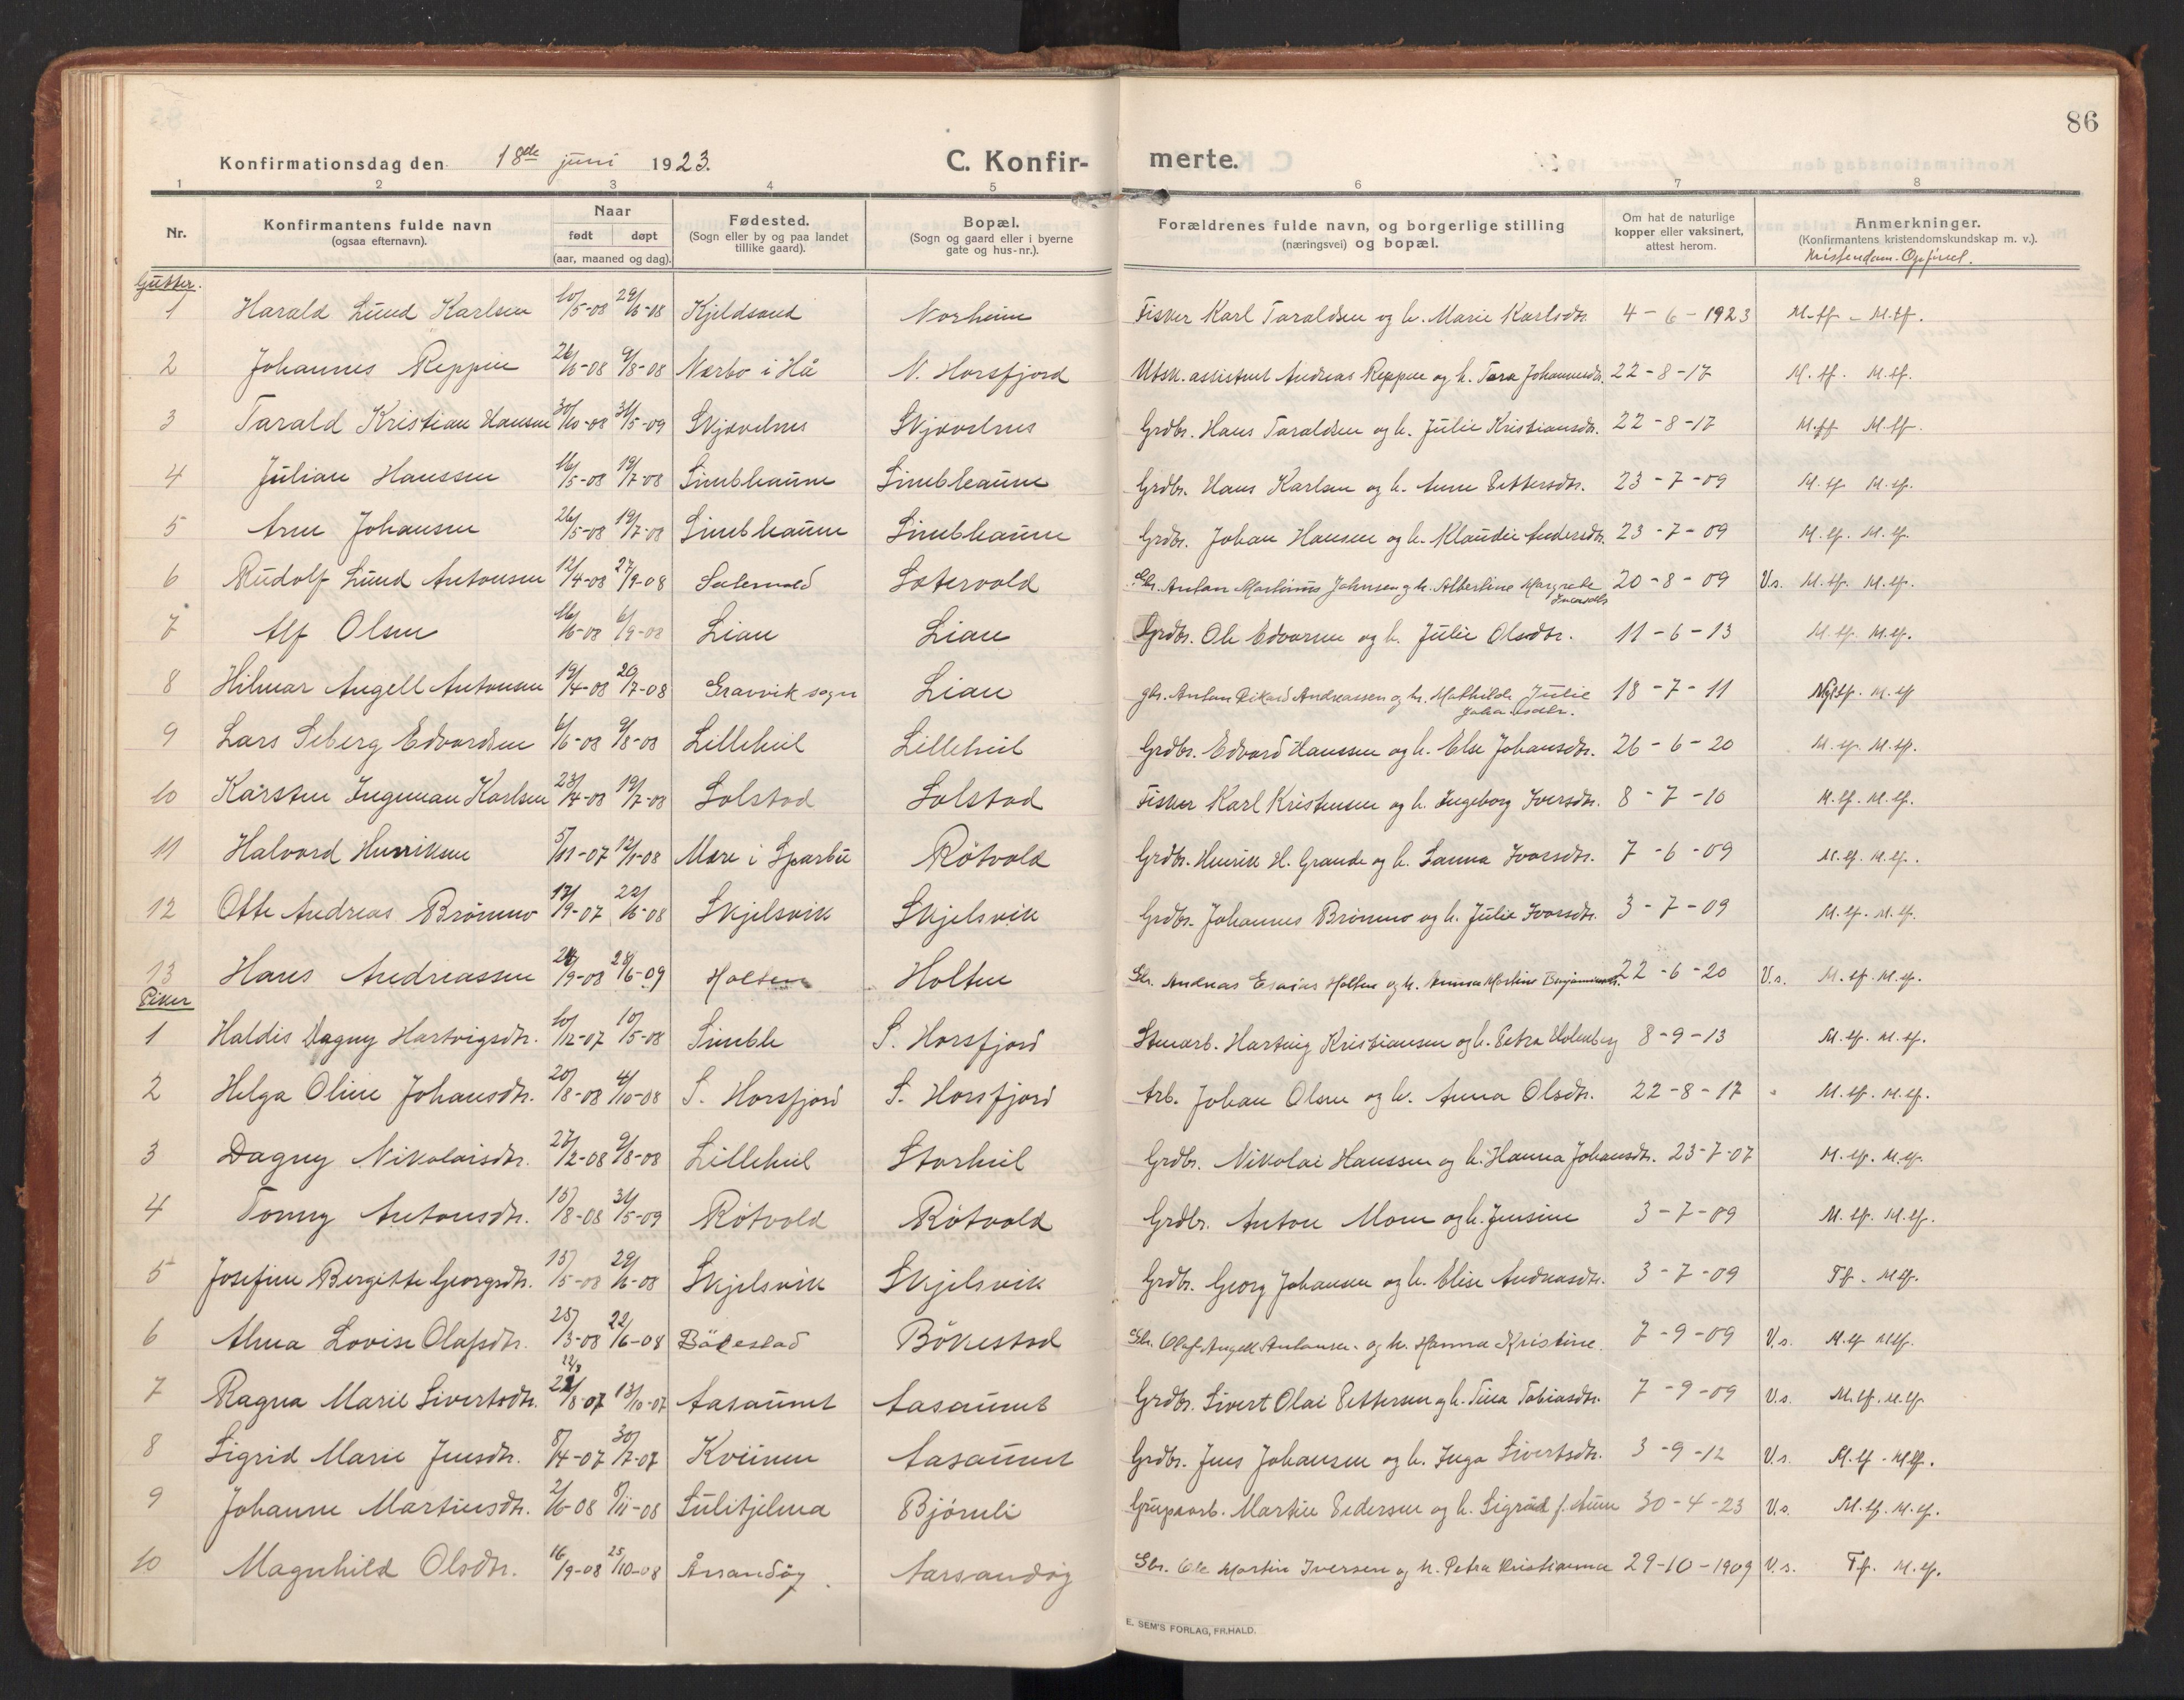 86
Konfirmationsdag den 18de juni 1923. C. Konfir- merte.
1 2 3 4 5 6 7 8
Nr. Konfirmantens fulde navn (ogsaa efternavn). Naar født døpt (aar, maaned og dag). Fødested. (Sogn eller by og paa landet tillike gaard). Bopæl. (Sogn og gaard eller i byerne gate og hus-nr.). Forældrenes fulde navn, og borgerlige stilling (næringsvei) og bopæl. Om hat de naturlige kopper eller vaksinert, attest herom. Anmerkninger. (Konfirmantens kristendomskundskap m. v.).
Kristendom. Opførsel.
Gutter.
1 Harald Lund Karlsen 10/5-08 29/6-08 Kjeldsand Norheim Fisker Karl Taraldsen og h. Marie Karlsdtr. 4-6-1923 M.tf - M.tf.
2 Johannes Reppen 26/6-08 9/8-08 Nærbø i Hå N. Horsfjord Utsk. assistent Andreas Reppen og h. Tora Johannesdtr. 22-8-17 M.tf. M.tf.
3 Tarald Kristian Hansen 30/10-08 31/5-09 Skjævelnes Skjævelnes Grdbr. Hans Taraldsen og h. Julie Kristiansdtr. 22-8-17 M.tf M.tf.
4 Julian Hanssen 16/5-08 19/7-08 Simblehaunn Simblehaunn Grdbr. Hans Karlsen og h. Anne Pettersdtr. 23-7-09 M.tf M.tf.
5 Arne Johansen 26/5-08 19/7-08 Simblehaunn Simblehaunn Grdbr. Johan Hansen og h. Klaudie Andersdtr. 23-7-09 M.tf. M.tf.
6 Rudolf Lund Antonsen 12/4-08 27/9-08 Sætervold Sætervold Gbr. Anton Martinus Johnsen og h. Albertine Margrete 20-8-09 V.s. M.tf. M.tf.
7 Alf Olsen 16/6-08 6/9-08 Lian Lian Grdbr. Ole Edvarsen og h. Julie Olsdtr. 11-6-13 M.tf. M.tf.
8 Hilmar Angell Antonsen 19/4-08 20/7-08 Gravvik sogn Lian gbr. Anton Rikard Andreassen og h. Mathilde Julie Johansdtr. 18-7-11 M.tf
9 Lars Seberg Edvardsen 6/6-08 9/8-08 Lilleheil Lilleheil Grdbr. Edvard Hanssen og h. Else Johansdtr. 26-6-20 M.tf. M.tf.
10 Karsten Ingeman Karlsen 23/4-08 19/7-08 Solstad Solstad Fisker Karl Kristensen og h. Ingeborg Iversdtr. 8-7-10 M.tf. M.tf.
11 Halvard Henriksen 5/11-07 12/1-08 Mære i Sparbu Rötvold Grdbr. Henrik H. Grande og h. Sanna Ivarsdtr. 7-6-09 M.tf. M.tf.
12 Otte Andreas Brönmo 17/9-07 22/6-08 Skjelsvik Skjelsvik Grdbr. Johannes Brönmo og h. Julie Ivarsdtr. 3-7-09 M.tf. M.tf.
13 Hans Andreassen /9-08 28/6-09 Holten Holten Gbr. Andreas Esaias Holten og h. Anna Martine 22-6-20 V.s. M.tf. M.tf.
Piker
1 Haldis Dagny Hartvigsdtr. 10/12-07 10/5-08 Simble S. Horsfjord Stenarb. Hartvig Kristiansen og h. Petra Holmberg 8-9-13 M.tf. M.tf.
2 Helga Oline Johansdtr. 20/8-08 4/10-08 S. Horsfjord S. Horsfjord Arb. Johan Olsen og h. Anna Olsdtr. 22-8-17 M.tf. M.tf.
3 Dagny Nikolaisdtr. 27/2-08 9/8-08 Lilleheil Storheil Grdbr. Nikolai Hanssen og h. Hanna Johansdtr. 23-7-07 M.tf. M.tf.
4 Tonny Antonsdtr. 15/8-08 31/5-09 Rötvold Rötvold Grdbr. Anton Moen og h. Jensine 3-7-09 M.tf. M.tf.
5 Josefine Bergitte Georgsdtr. 15/5-08 29/6-08 Skjelsvik Skjelsvik Grdbr. Georg Johansen og h. Elise Andreasdtr. 3-7-09 T.f. M.tf.
6 Alma Lovise Olafsdtr. 25/3-08 22/6-08 Bökestad Bökestad Gbr. Olaf Angell Antonsen og h. Hanna Kristine. 7-9-09 V.s. M.tf M.tf.
7 Ragna Marie Sivertsdtr. 22/8-07 13/10-07 Aasaunet Aasaunet Grdbr. Sivert Olai Pettersen og h. Tina Tobiasdtr. 7-9-09 V.s. M.tf. M.tf.
8 Sigrid Marie Jensdtr. 8/4-07 30/7-07 Aasaunet Grdbr. Jens Johansen og h. Inga Sivertsdtr. 3-9-12 V.s. M.tf - M.tf.
9 Johanne Martinsdtr. 2/6-08 8/11-08 Sulitjelma Björnli Grupearb. Martin Pedersen og h. Sigrid f. Aune 30-4-23 V.s. M.tf. M.tf.
10 Magnhild Olsdtr. 16/9-08 25/10-08 Årsandöy. Aarsandöy Gbr. Ole Martin Iversen og h. Petra Kristianna 29-10-1909 V.s. T.f. M.tf.
E. SEM'S FORLAG, FR.HALD.